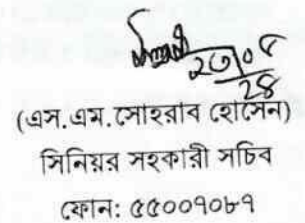 (এস.এম.সোহরাব হোসেন)
সিনিয়র সহকারী সচিব
ফোন: ৫৫০০৭০৮৭